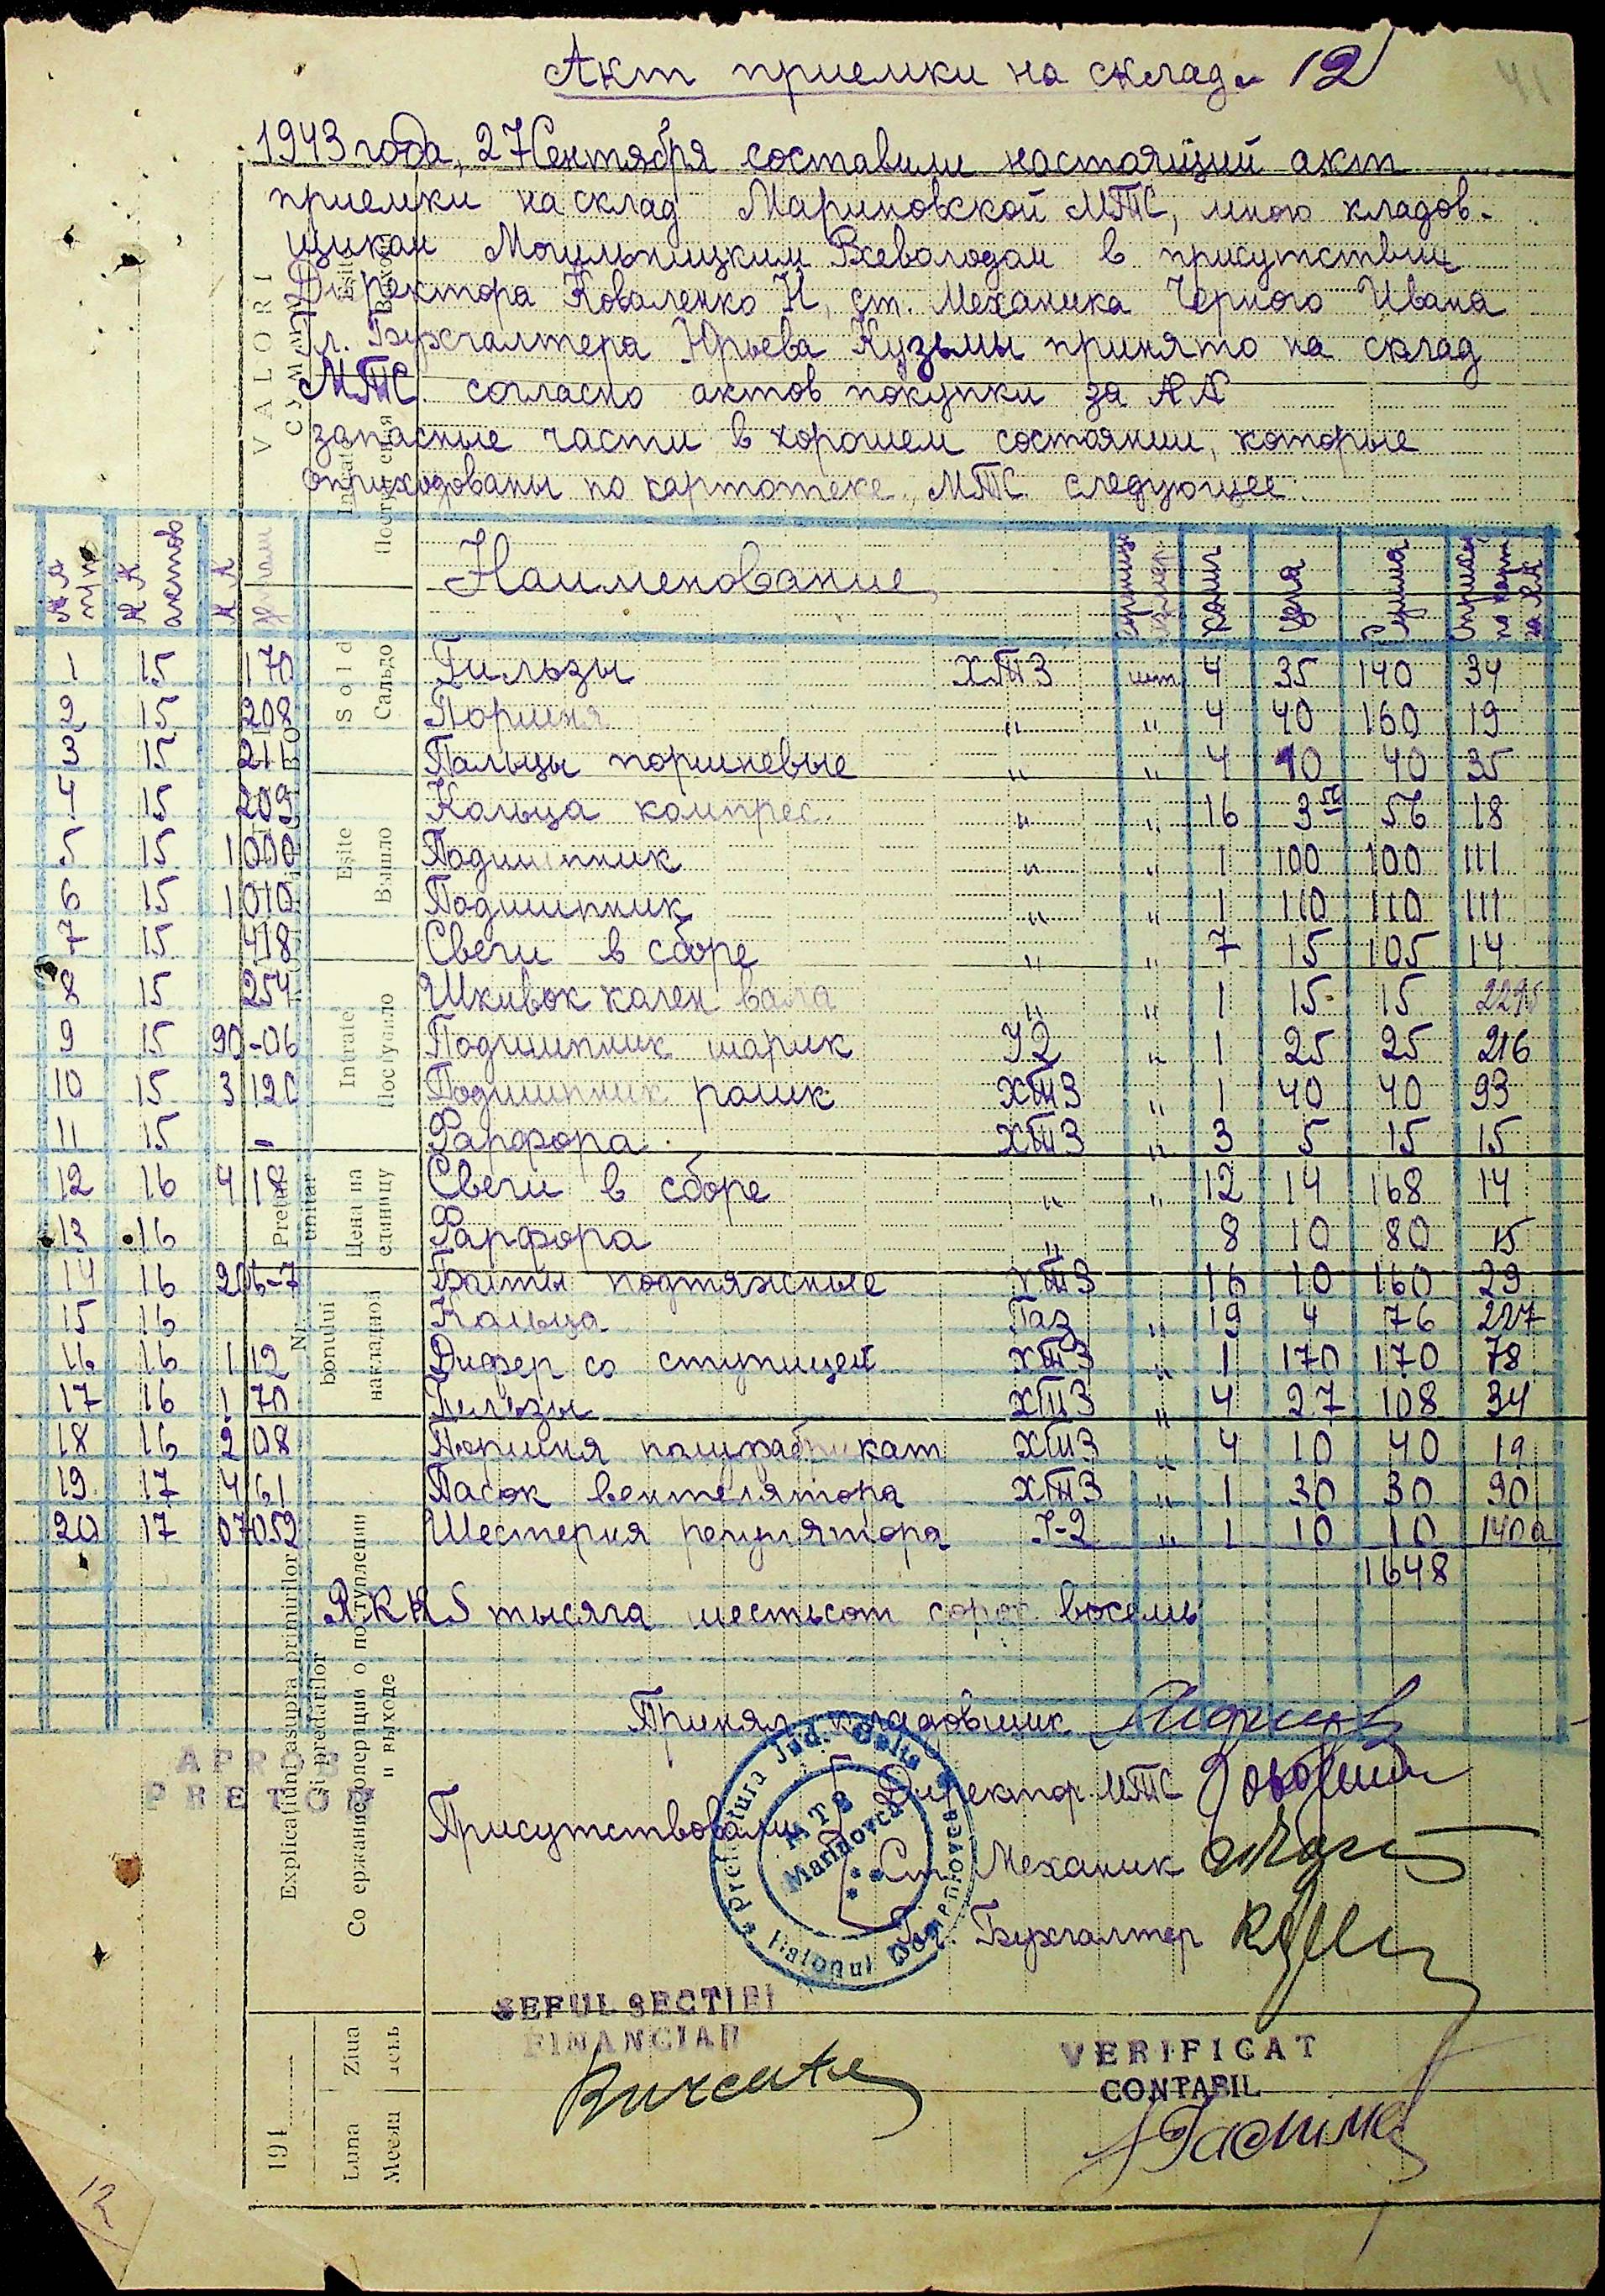 Акт приемки на склад 12
41
1943 года, 27 Сентября составили настоящий акт
приемки на склад Мариновской МТС, мною кладов-
щиком Могильницким Всеволодом в присутствии
Директора Коваленко Н, ст. Механика Черного Ивана
Гл. Бухгалтера Юрьева Кузьмы принято на склад
МТС. согласно актов покупки за №№
запасные части в хорошем состоянии, которые
оприходованы по картотеке, МТС следующее:
№№ п/п № № актов № № Наименование, колич цена Сумма
1 15 170 Гильзы ХТЗ шт 4 35 140 34
2 15 208 Поршня " " 4 40 160 19
3 15 211 Пальцы поршневые " " 4 10 40 35
4 15 209 Кольца компрес. " " 16 3 50 56 18
5 15 1000 Подшипник " " 1 100 100 111
6 15 1010 Подшипник " " 1 110 110 111
7 15 418 Свечи в сборе " " 7 15 105 14
8 15 254 Шкивок колен вала " " 1 15 15 2295
9 15 90-06 Подшипник шарик У2 " 1 25 25 216
10 15 3120 Подшипник ролик ХТЗ " 1 40 40 93
11 15 - Фарфора ХТЗ " 3 5 15 15
12 16 418 Свечи в сборе " " 12 14 168 14
13 16 Фарфора " 8 10 80 15
14 16 206-7 Балты подтяжные ХТЗ 16 10 160 29
15 16 Кольца Газ " 19 4 76 227
16 16 112 Дифер со ступицей ХТЗ " 1 170 170 78
17 16 170 Гельзы ХТЗ " 4 27 108 34
18 16 208 Поршня полуфабрикат ХТЗ " 4 10 40 19
19 17 461 Пасок вентелятора ХТЗ " 1 30 30 90
20 17 07052 Шестерня регулятора У-2 " 1 10 10 140а
1648
RKKS тысяча шестьсот сорок восемь
Принял кладовщик
Директор МТС
Присутствовали
Ст. Механик
Гл. Бухгалтер
Pretura Jud. Golta
Raionul
MTS
Marinovca
APROB
PREŢUL
ŞEFUL SECŢIEI
FINANCIAR
VERIFICAT
CONTABIL
VALORI
Intrate
Поступило
Sold
Сальдо
Eşite
Вышло
Intrate
Поступило
Preţ unitar
Цена на единицу
Nr. bonului
накладной
Explicaţiuni asupra primirilor
şi predărilor
Со ержание операции о поступлении
и выходе
194
Ziua
День
Luna
Месяц
12